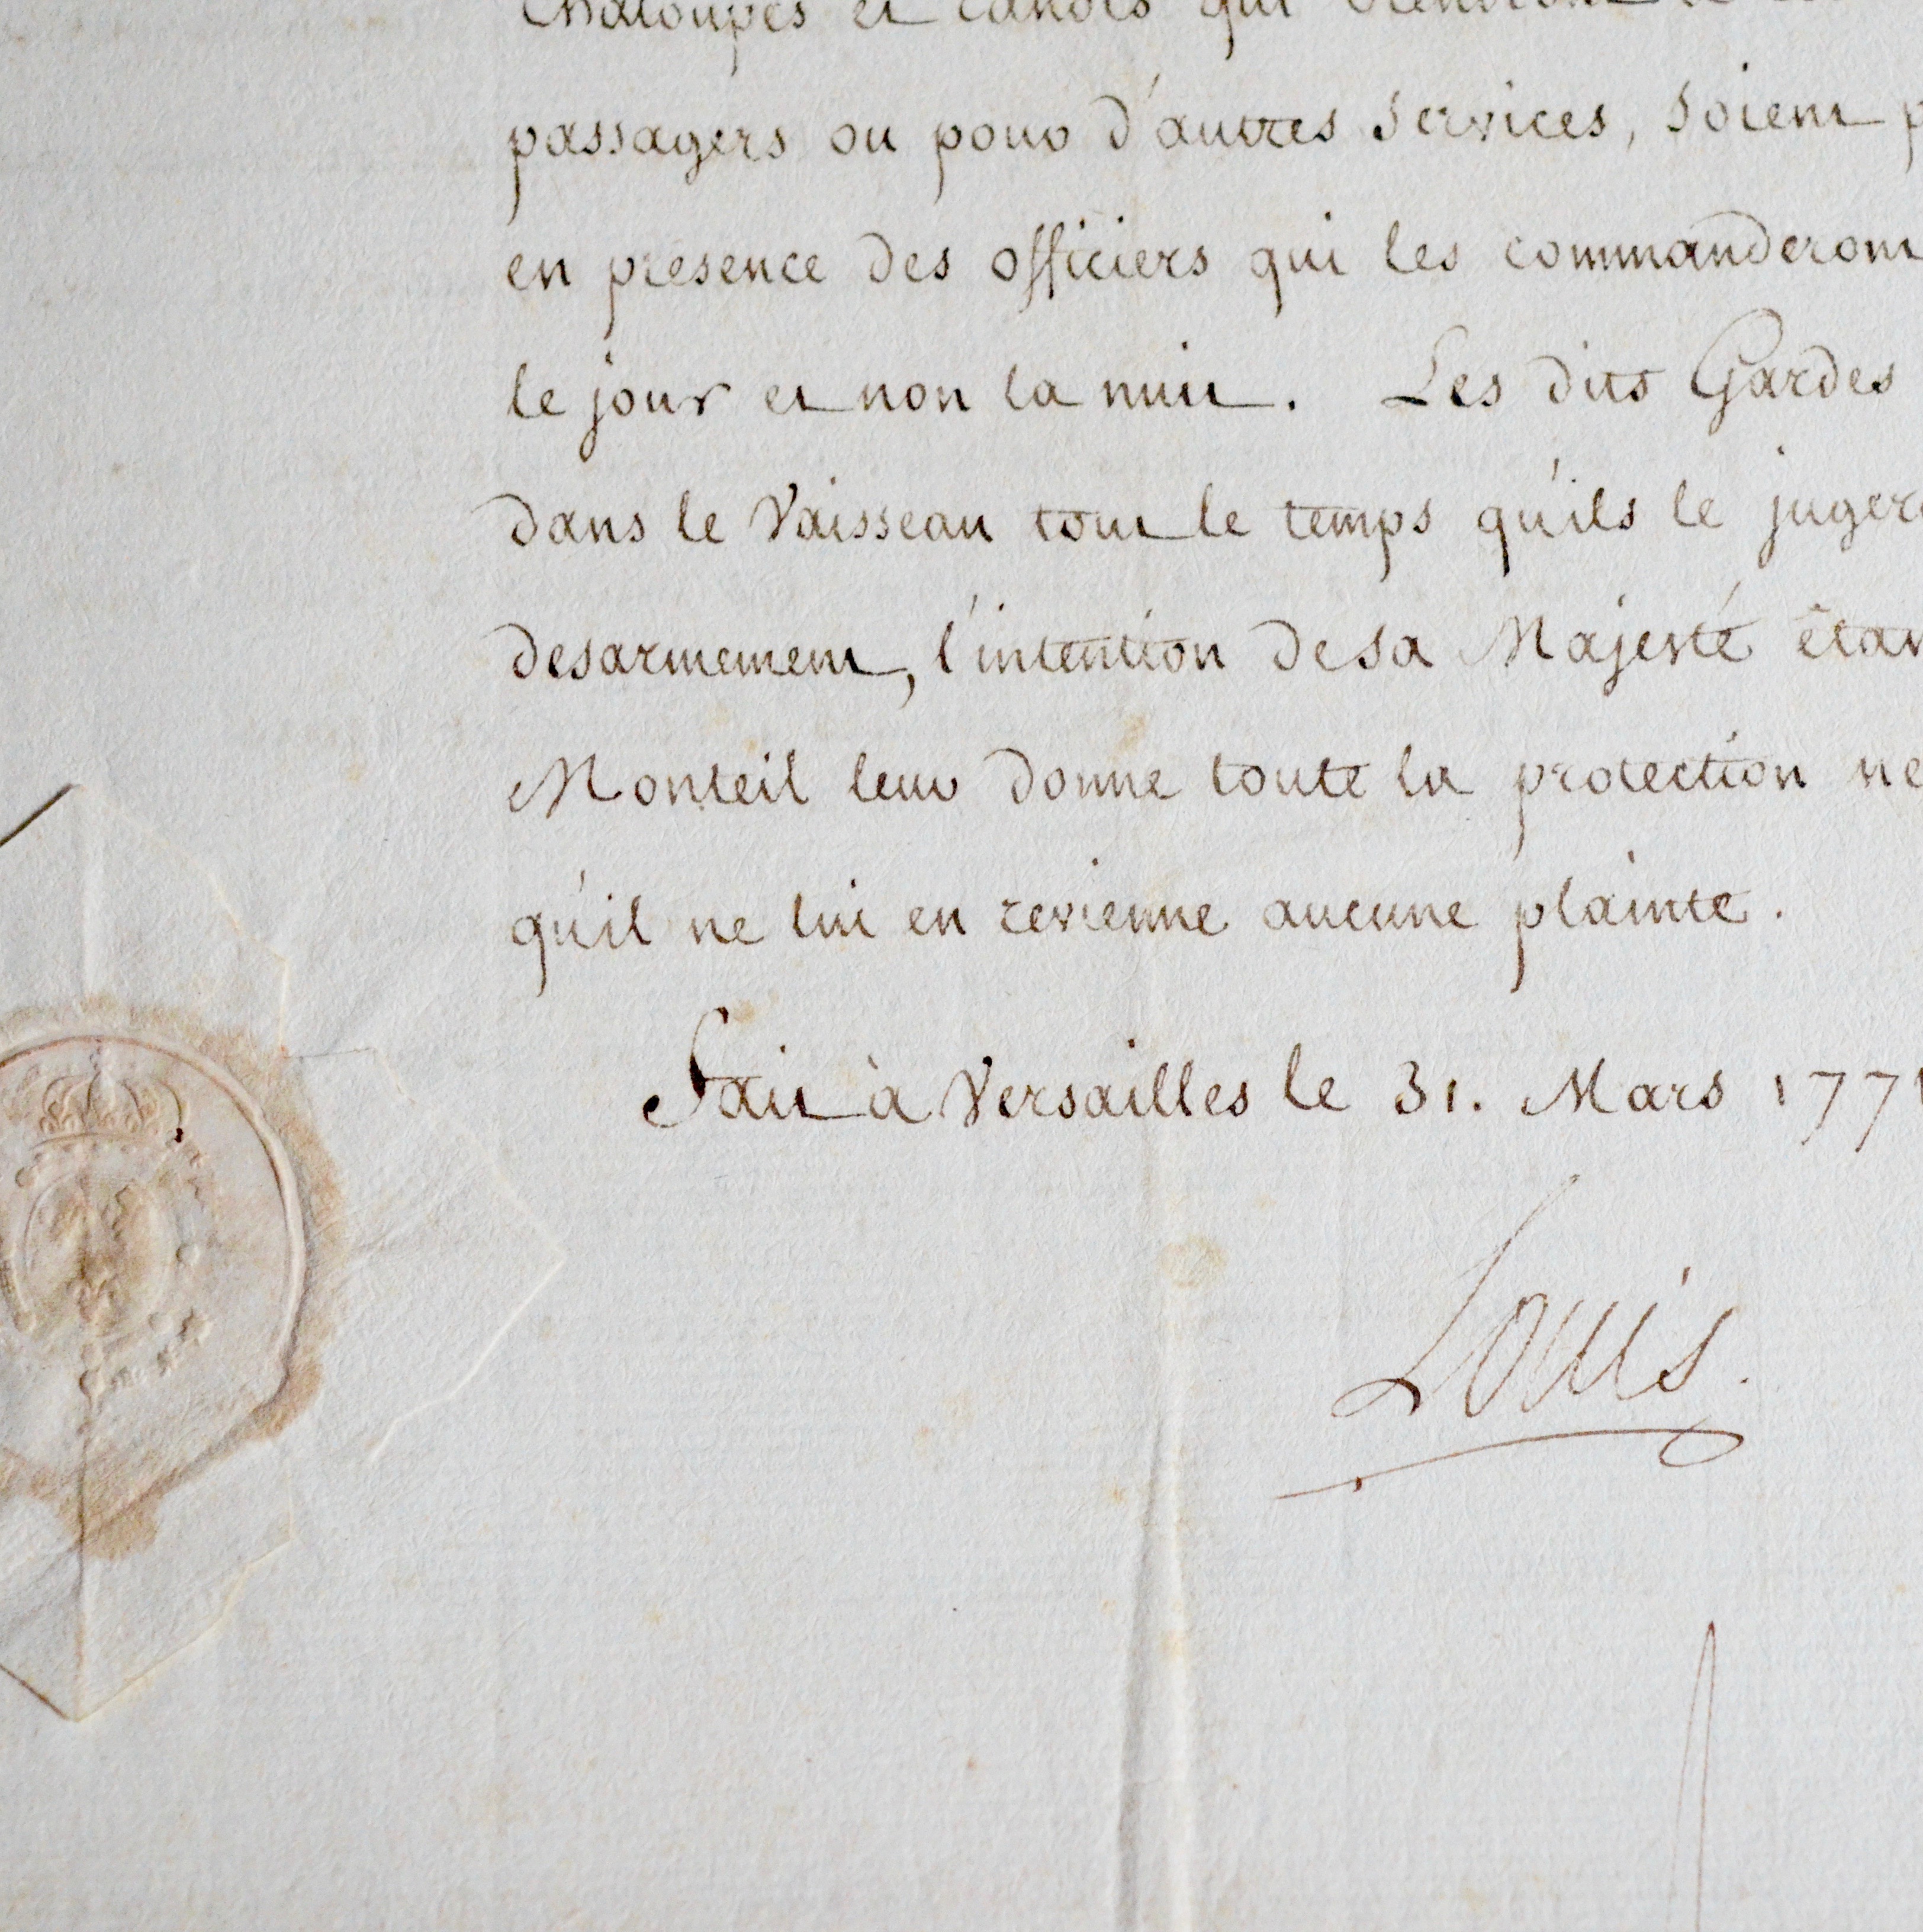 Chaloupes et canots qui
passagers ou pour d'autres services, soient
en presence des officiers qui les commanderont
le jour et non la nuit. Les dits Gardes
dans le Vaisseau tout le temps qu'ils le juger
desarmement, l'intention de sa Majesté étan
Monteil leur donne toute la protection ne
qu'il ne lui en revienne aucune plainte.
Fait à Versailles le 31. Mars 1771
Louis.